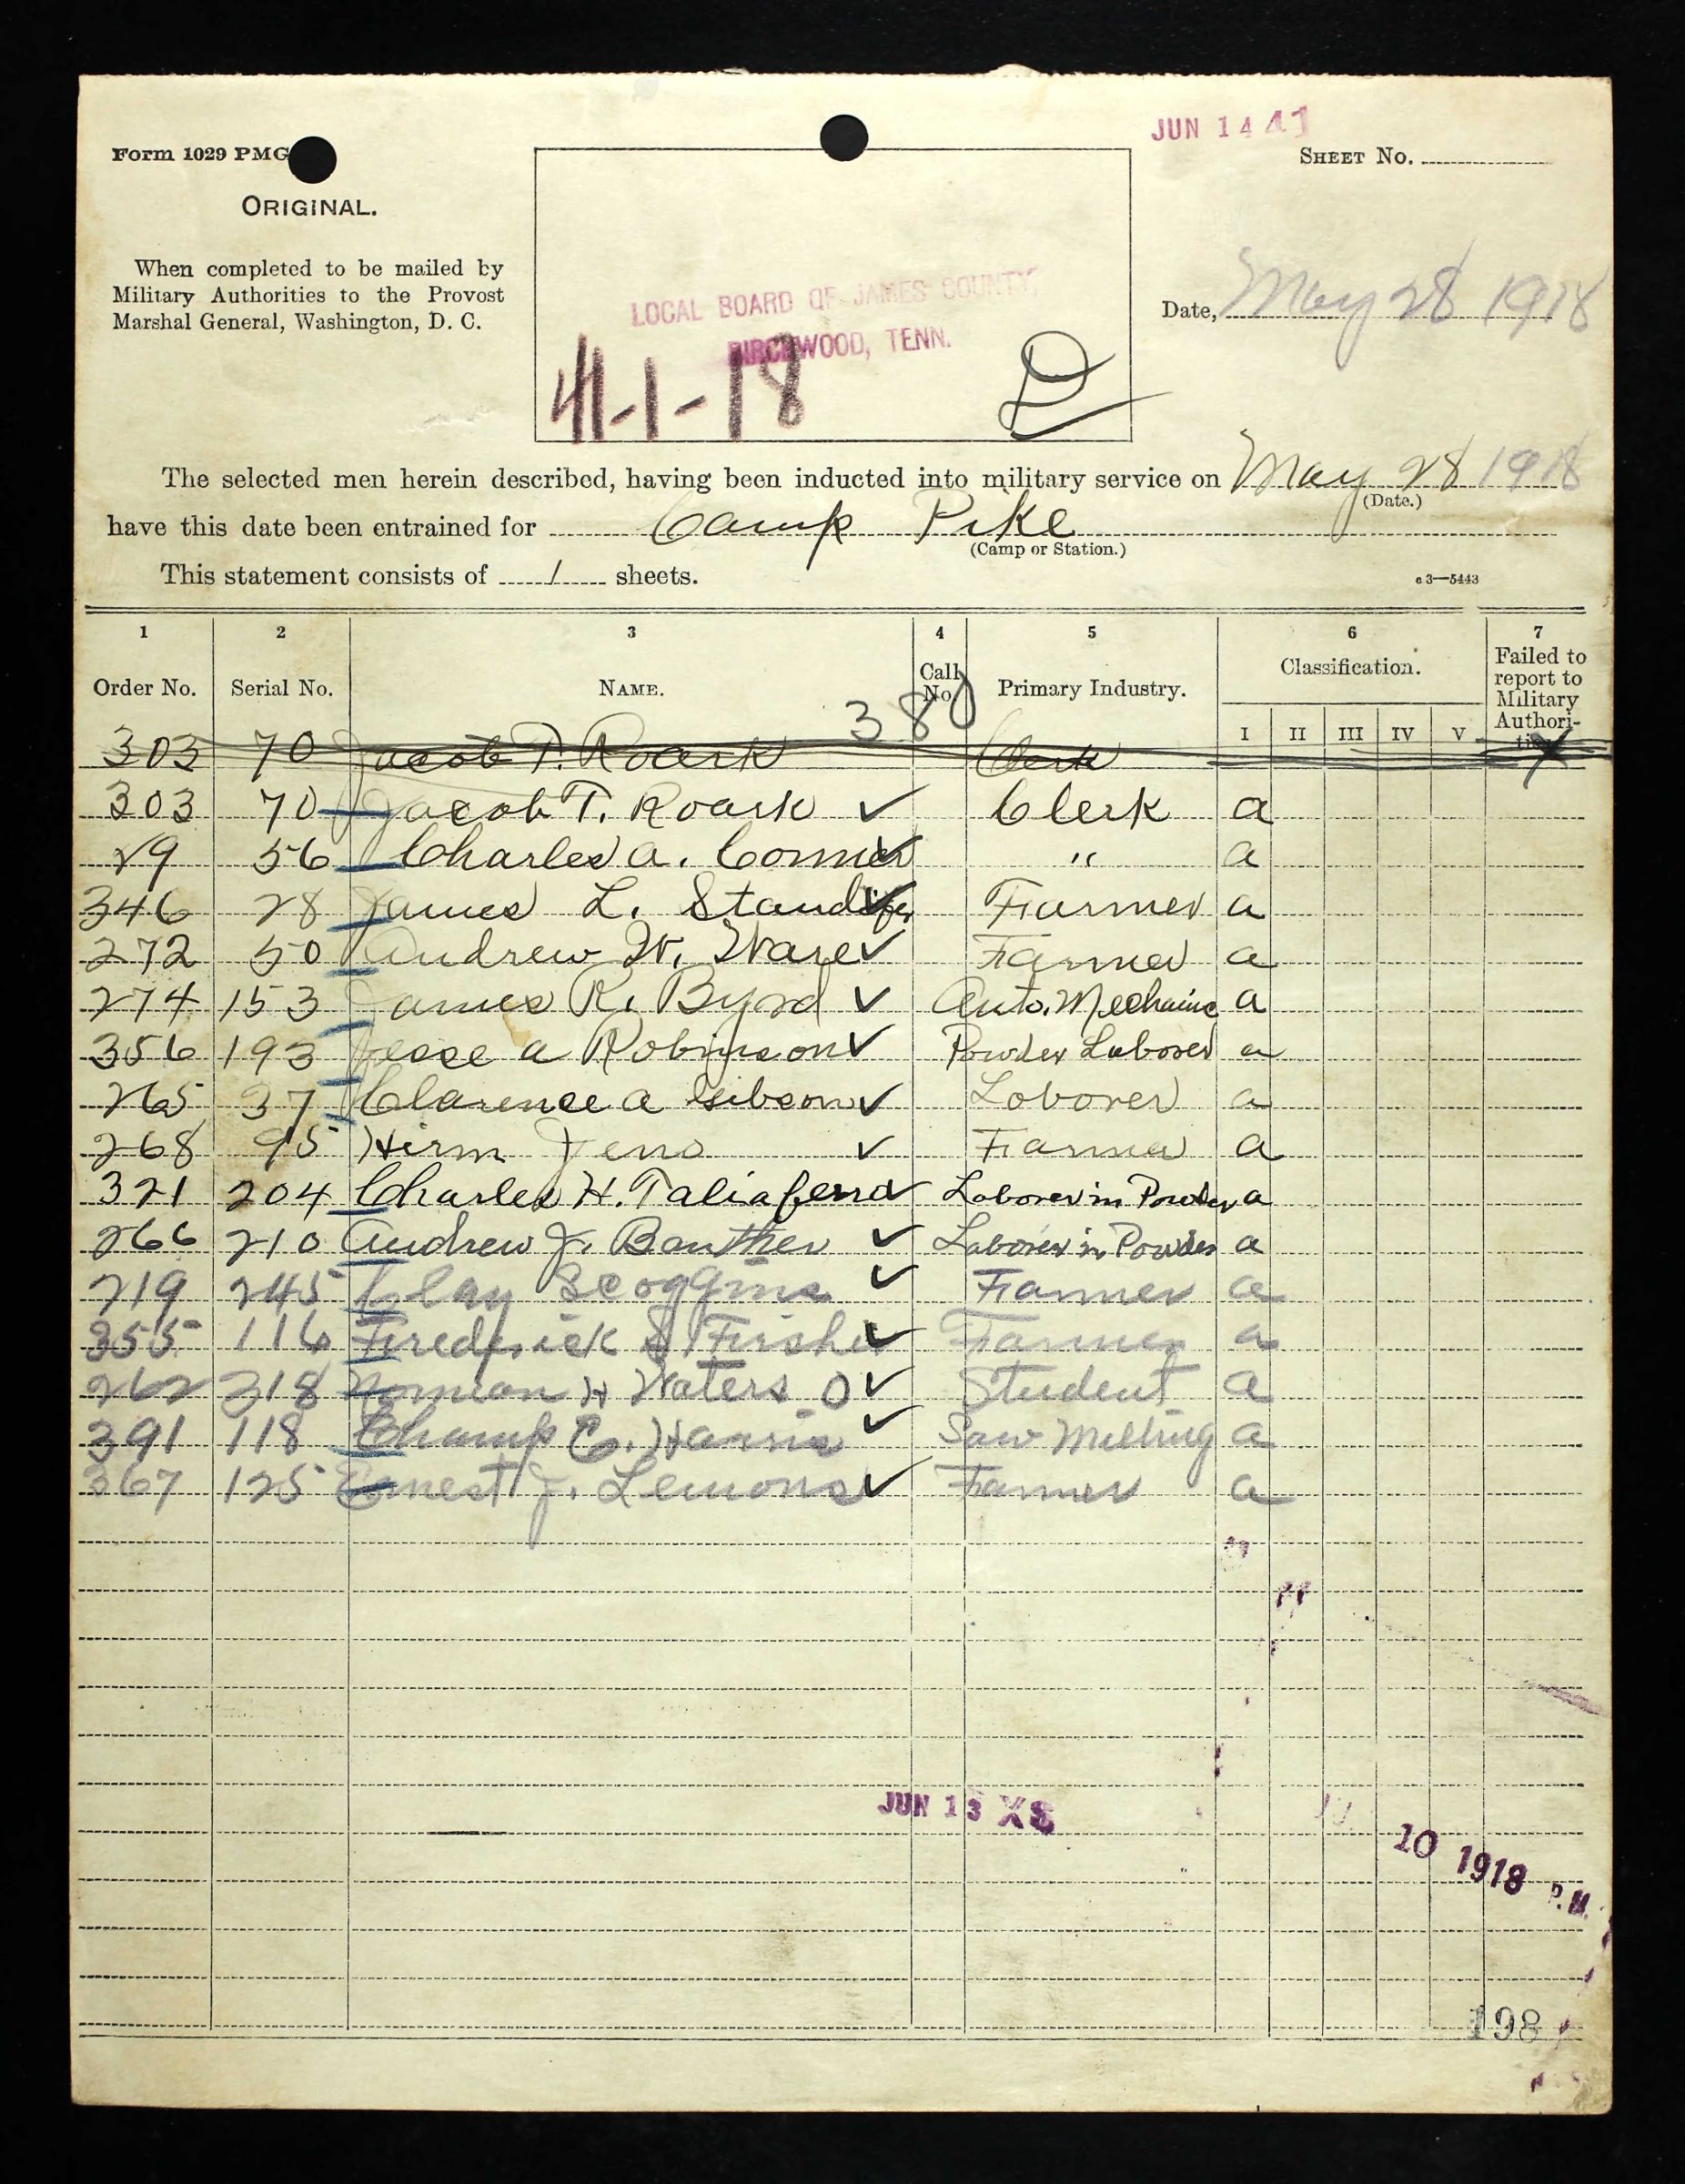 JUN 14 41
Form 1029 PMG
SHEET No.
ORIGINAL.
When completed to be mailed by
Military Authorities to the Provost
Marshal General, Washington, D. C.
LOCAL BOARD OF JAMES COUNTY,
BIRCHWOOD, TENN.
41-1-18
D
Date, May 28 1918
The selected men herein described, having been inducted into military service on May 28 1918
(Date.)
have this date been entrained for Camp Pike
(Camp or Station.)
This statement consists of 1 sheets.
c3—5443
1 2 3 4 5 6 7
Order No. Serial No. NAME. Call No. Primary Industry. Classification. Failed to report to Military Authorities
I II III IV V
380
303 70 Jacob T. Roark Clerk X
303 70 Jacob T. Roark ✓ Clerk a
29 56 Charles a. Conner ✓ " a
346 28 James L. Standifer ✓ Farmer a
272 50 Andrew W. Ware ✓ Farmer a
274 153 James R. Byrd ✓ Auto. Mechainc a
356 193 Jesse a Robinson ✓ Powder Laborer a
265 37 Clarence a Gibson ✓ Loborer a
268 95 Hirm Jeno ✓ Farmer a
321 204 Charles H. Taliaferro ✓ Laborer in Powder a
266 210 Andrew J. Bauther ✓ Laborer in Powder a
219 245 Clay Scoggins ✓ Farmer a
355 116 Frederick S Fisher ✓ Farmer a
262 318 Norman H Waters O ✓ Student a
391 118 Champ C. Harris ✓ Saw Milling a
367 125 Ernest J. Lemons ✓ Farmer a
JUN 13 X8
10 1918 P.M.
198